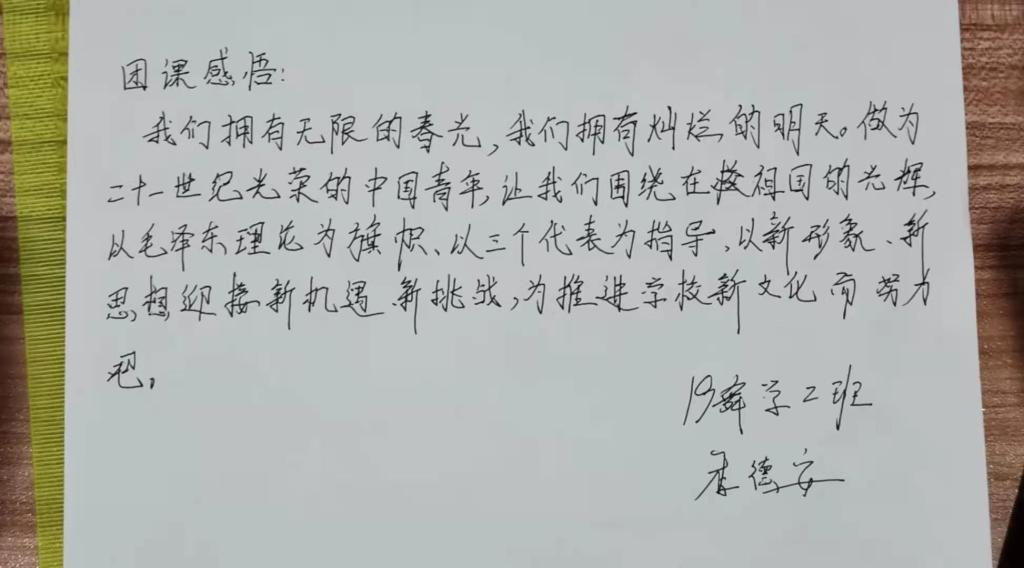 团课感悟:
我们拥有无限的春光,我们拥有灿烂的明天。做为
二十一世纪光荣的中国青年,让我们围绕在祖国的光辉,
以毛泽东理论为旗帜、以三个代表为指导,以新形象、新
思想迎接新机遇 新挑战,为推进学校新文化而努力
吧。
19舞学二班
李德安